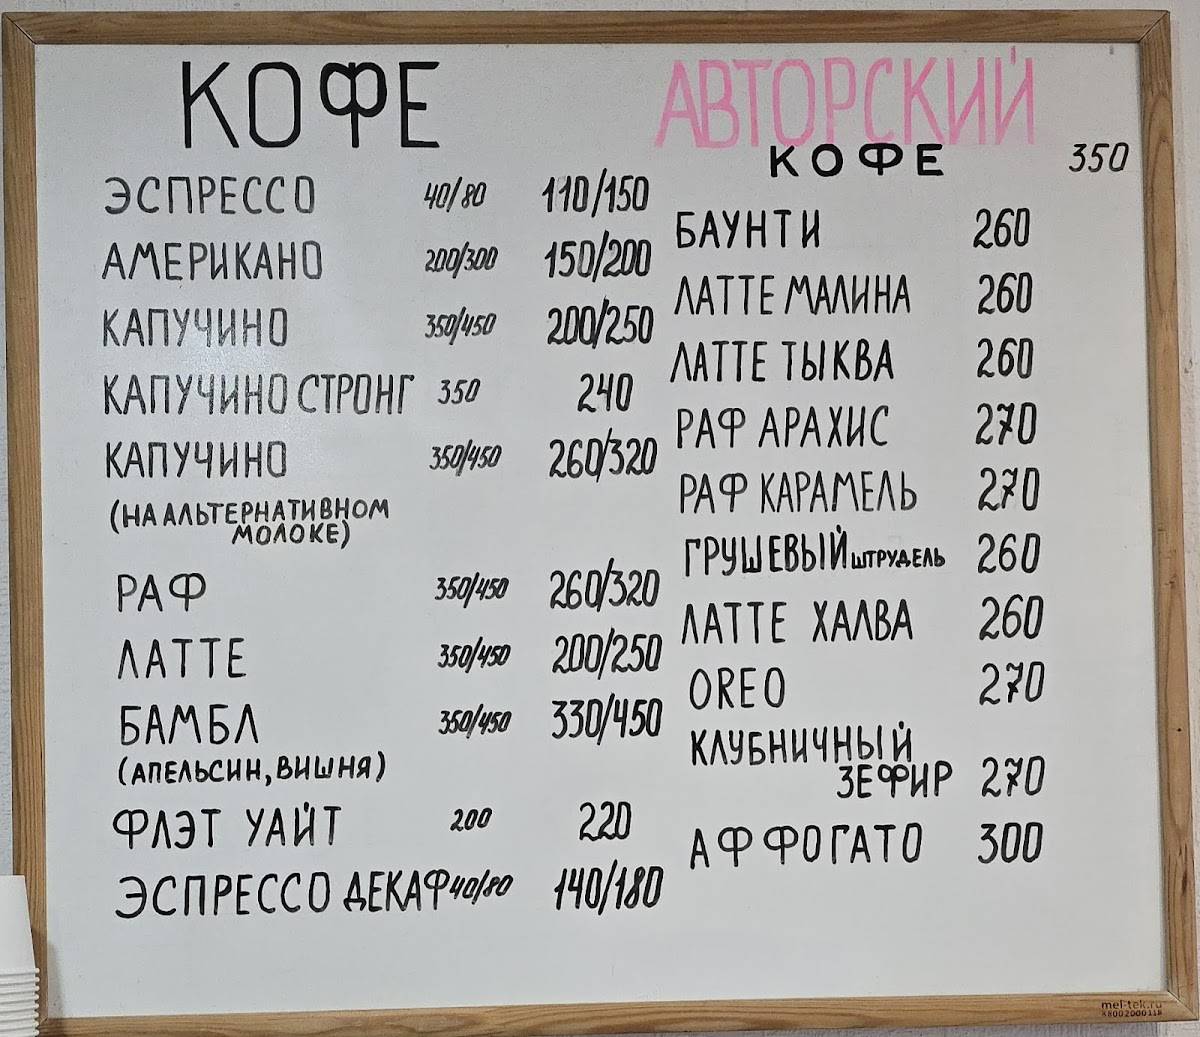 КОФЕ
ЭСПРЕССО 40/80 110/150
АМЕРИКАНО 200/300 150/200
КАПУЧИНО 350/450 200/250
КАПУЧИНО СТРОНГ 350 240
КАПУЧИНО 350/450 260/320
(НА АЛЬТЕРНАТИВНОМ
МОЛОКЕ)
РАФ 350/450 260/320
ЛАТТЕ 350/450 200/250
БАМБЛ 350/450 330/450
(АПЕЛЬСИН, ВИШНЯ)
ФЛЭТ УАЙТ 200 220
ЭСПРЕССО ДЕКАФ 40/80 140/180
АВТОРСКИЙ
КОФЕ 350
БАУНТИ 260
ЛАТТЕ МАЛИНА 260
ЛАТТЕ ТЫКВА 260
РАФ АРАХИС 270
РАФ КАРАМЕЛЬ 270
ГРУШЕВЫЙ ШТРУДЕЛЬ 260
ЛАТТЕ ХАЛВА 260
OREO 270
КЛУБНИЧНЫЙ
ЗЕФИР 270
АФФОГАТО 300
mel-tek.ru
88002000118